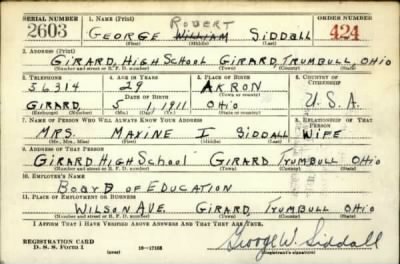 SERIAL NUMBER 1. NAME (Print) ORDER NUMBER
ROBERT
2603 GEORGE WILLIAM SIDDALL 424
(First) (Middle) (Last)
2. ADDRESS (Print)
GIRARD HIGH SCHOOL GIRARD TRUMBULL OHIO
(Number and street or R. F. D. number) (Town) (County) (State)
3. TELEPHONE 4. AGE IN YEARS 5. PLACE OF BIRTH 6. COUNTRY OF CITIZENSHIP
56314 29 AKRON
DATE OF BIRTH (Town or county)
GIRARD 5 1 1911 OHIO U.S.A.
(Exchange) (Number) (Mo.) (Day) (Yr.) (State or country)
7. NAME OF PERSON WHO WILL ALWAYS KNOW YOUR ADDRESS 8. RELATIONSHIP OF THAT PERSON
MRS. MAXINE I SIDDALL WIFE
(Mr., Mrs., Miss) (First) (Middle) (Last)
9. ADDRESS OF THAT PERSON
GIRARD HIGH SCHOOL GIRARD TRUMBULL OHIO
(Number and street or R. F. D. number) (Town) (County) (State)
10. EMPLOYER'S NAME
BOARD OF EDUCATION
11. PLACE OF EMPLOYMENT OR BUSINESS
WILSON AVE. GIRARD TRUMBULL OHIO
(Number and street or R. F. D. number) (Town) (County) (State)
I AFFIRM THAT I HAVE VERIFIED ABOVE ANSWERS AND THAT THEY ARE TRUE.
REGISTRATION CARD George W. Siddall
D. S. S. Form 1 (over) (Registrant's signature)